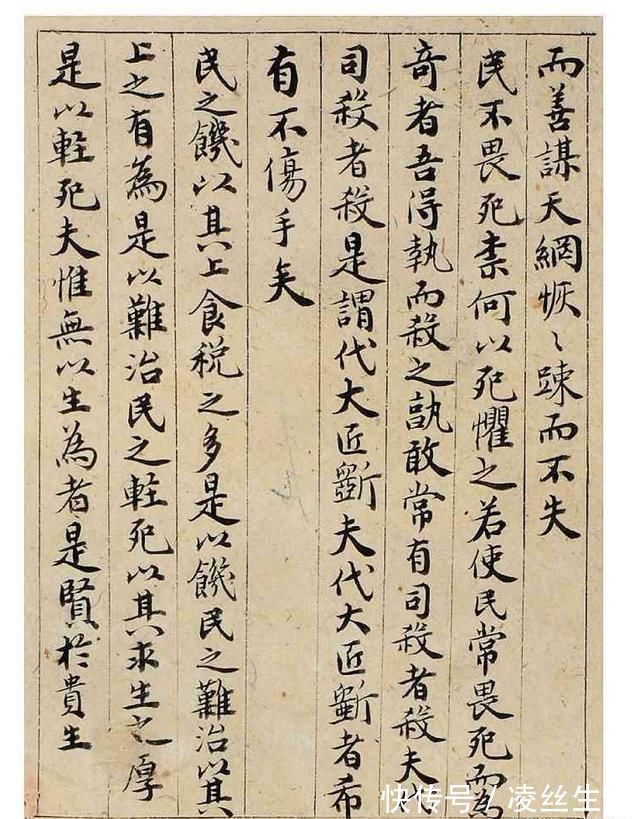 而善謀天網恢〻踈而不失
民不畏死柰何以死懼之若使民常畏死而為
奇者吾得執而殺之孰敢常有司殺者殺夫代
司殺者殺是謂代大匠斵夫代大匠斵者希
有不傷手矣
民之饑以其上食税之多是以饑民之難治以其
上之有為是以難治民之輕死以其求生之厚
是以輕死夫惟無以生為者是賢於貴生
快传号/凌丝生